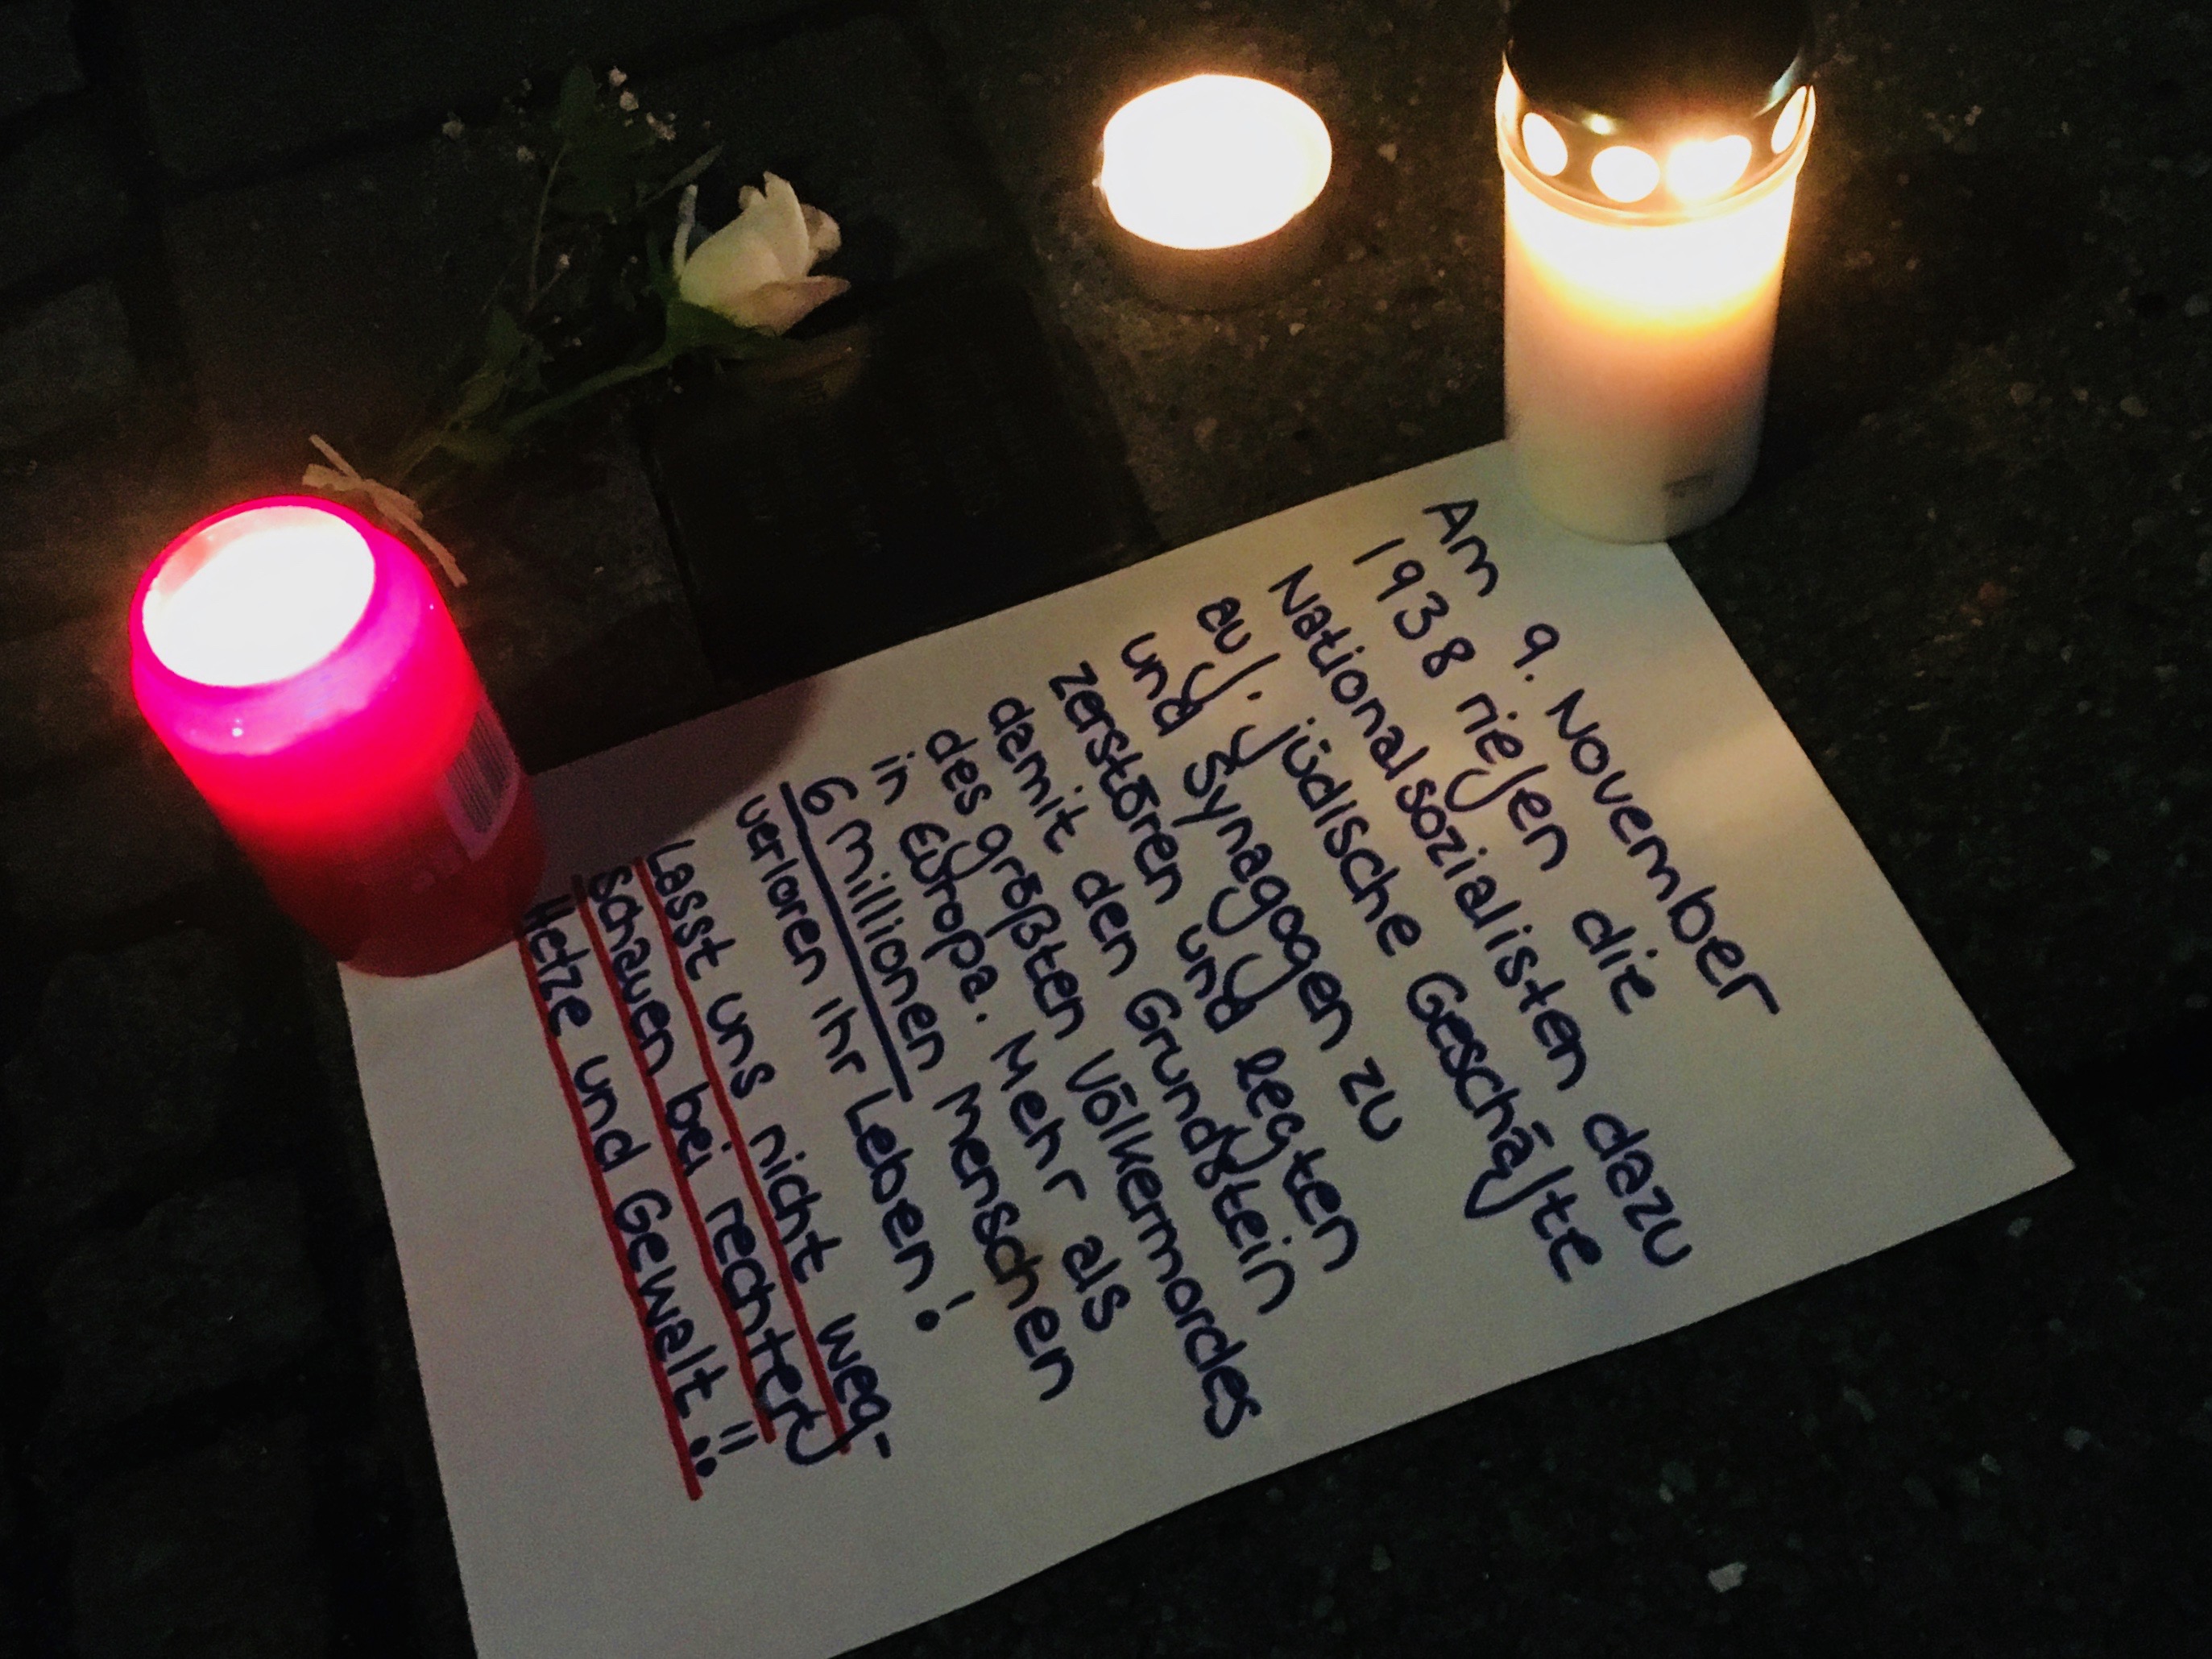 Am 9. November
1938 riefen die
Nationalsozialisten dazu
auf, jüdische Geschäfte
und Synagogen zu
zerstören und legten
damit den Grundstein
des größten Völkermordes
in Europa. Mehr als
6 Millionen Menschen
verloren ihr Leben!
Lasst uns nicht weg-
schauen bei rechter
Hetze und Gewalt!!